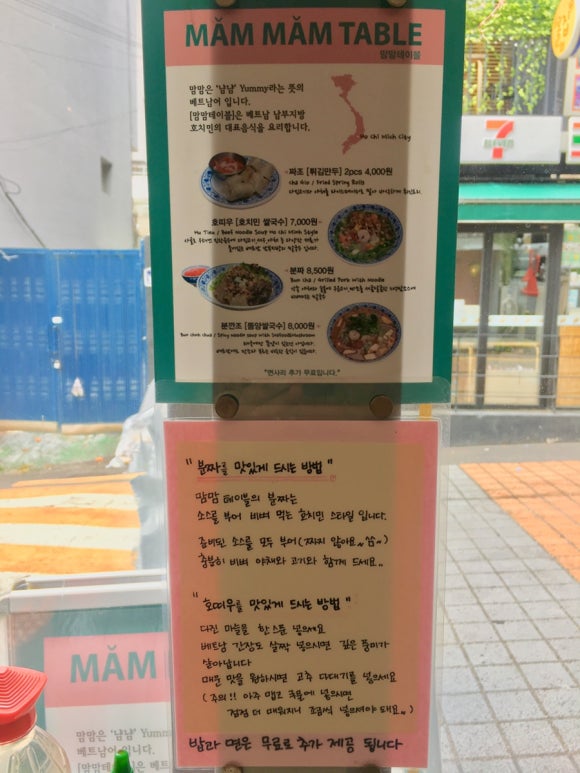 MĂM MĂM TABLE
맘맘테이블
맘맘은 '냠냠' Yummy라는 뜻의
베트남어 입니다.
[맘맘테이블]은 베트남 남부지방
호치민의 대표음식을 요리합니다.
Ho Chi Minh City
짜조 [튀김만두] 2pcs 4,000원
Cha Gio / Fried Spring Rolls
호띠우 [호치민 쌀국수] 7,000원
Hu Tieu / Beef Noodle Soup Ho Chi Minh Style
분짜 8,500원
Bun Cha / Grilled Pork With Noodle
분깐조 [똠양쌀국수] 8,000원
"면사리 추가 무료입니다."
7
ELEVEN
"분짜를 맛있게 드시는 방법"
맘맘 테이블의 분짜는
소스를 부어 비벼 먹는 호치민 스타일 입니다.
준비된 소스를 모두 부어 (짜지 않아요~^^~)
충분히 비벼 야채와 고기와 함께 드세요..
"호띠우를 맛있게 드시는 방법"
다진 마늘을 한스푼 넣으세요
베트남 간장도 살짝 넣으시면 깊은 풍미가
살아납니다
매운 맛을 원하시면 고추 다대기를 넣으세요
(주의!! 아주 맵고 국물에 넣으시면
점점 더 매워지니 조금씩 넣으셔야 돼요..)
밥과 면은 무료로 추가 제공 됩니다
MĂM
맘맘은 '냠냠' Yumm
베트남어 입니다.
[맘맘테이블]은 베